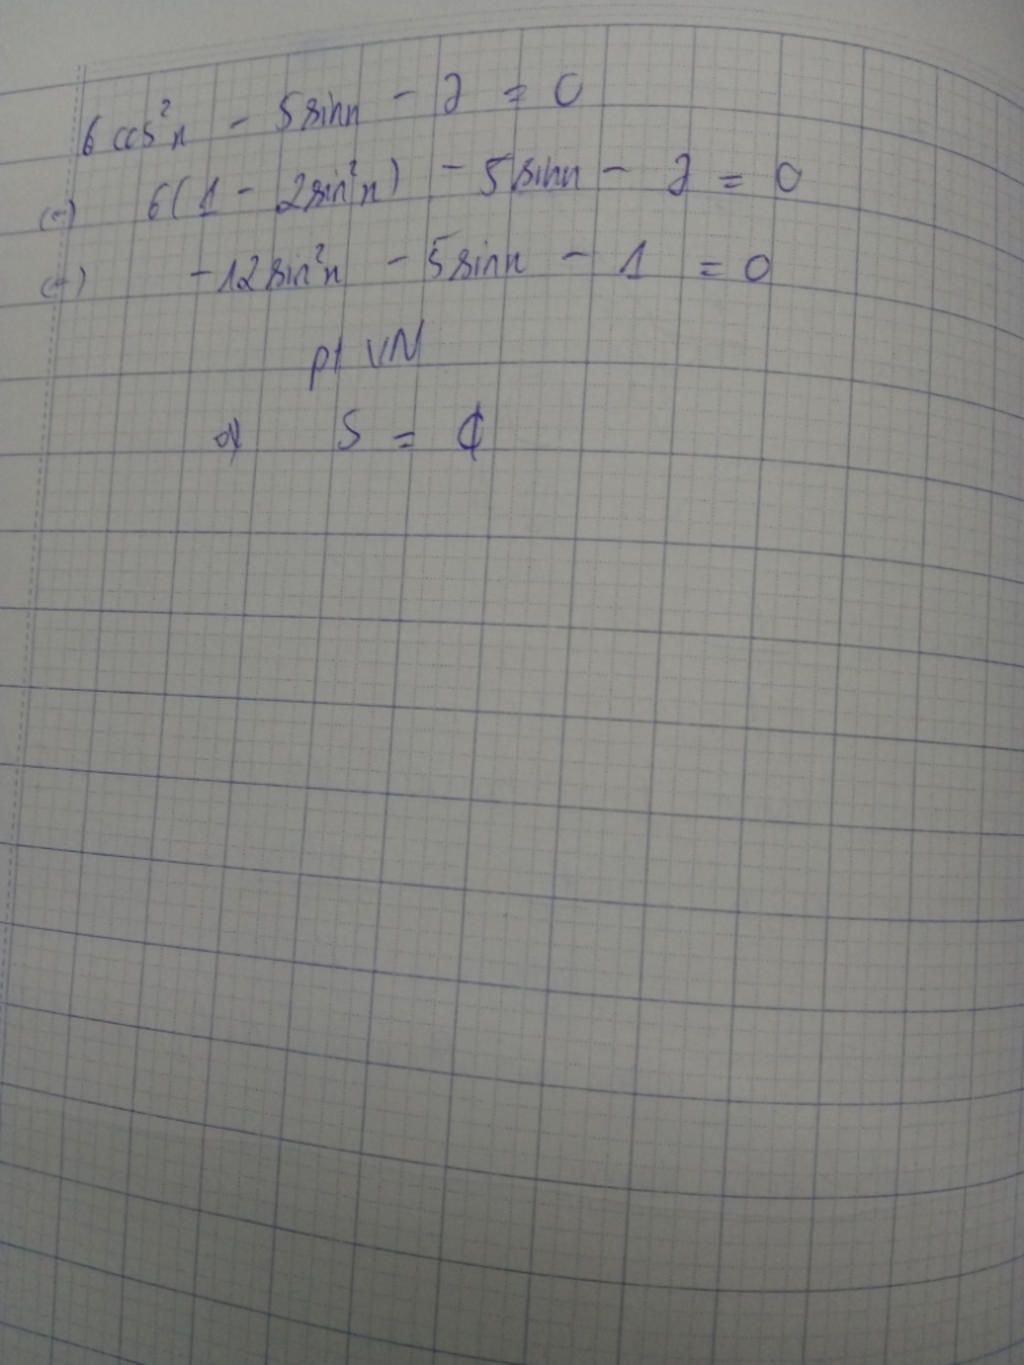 6 cos²x - 5 sinx - 7 = 0
(=) 6(1 - 2sin²x) - 5 sinx - 7 = 0
(=) -12 sin²x - 5 sinx - 1 = 0
pt VN
S = ϕ